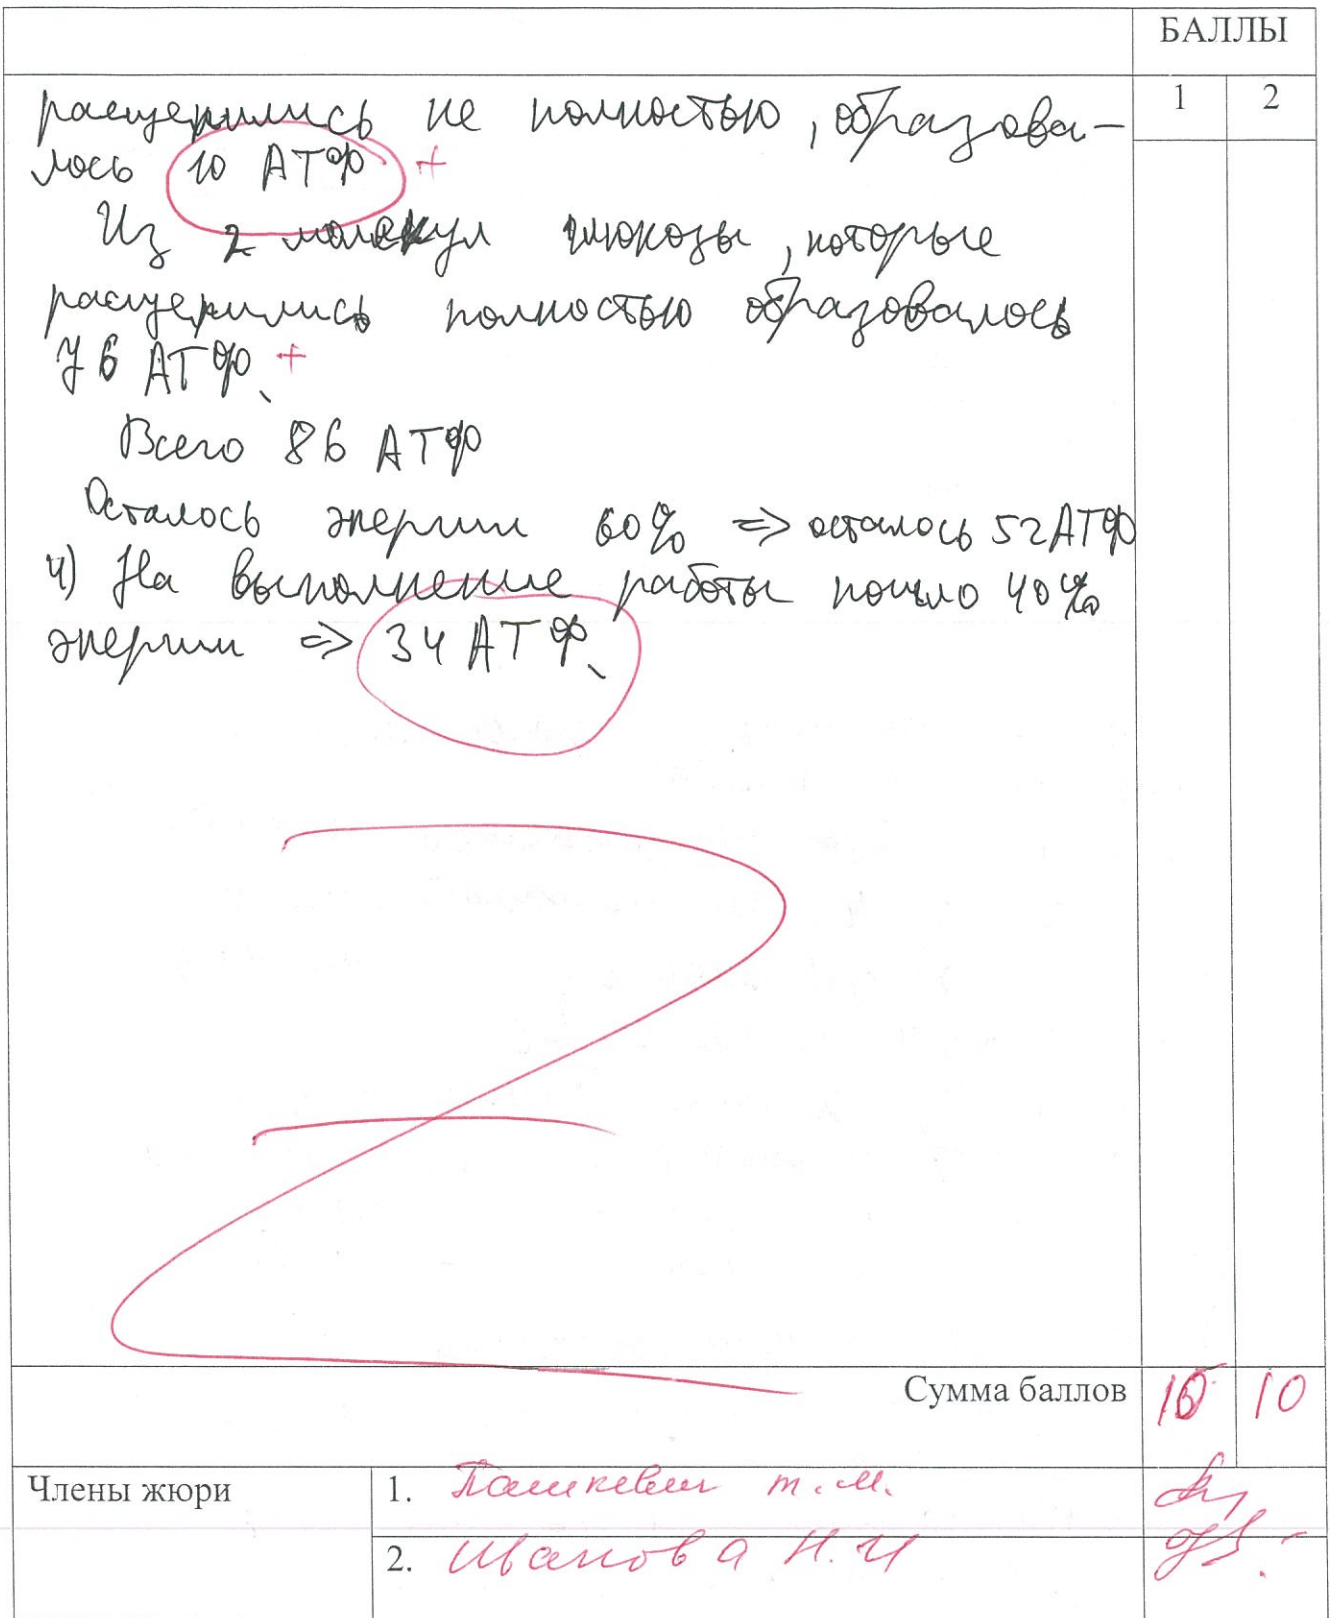 БАЛЛЫ
1 2
расщепились не полностью, образова-
лось 10 АТФ +
Из 2 молекул глюкозы, которые
расщепились полностью образовалось
76 АТФ. +
Всего 86 АТФ
Осталось энергии 60% => осталось 52 АТФ
4) На выполнение работы пошло 40%
энергии => 34 АТФ.
Сумма баллов 10 10
Члены жюри 1. Пашкевич Т.М.
2. Иванова Н.И